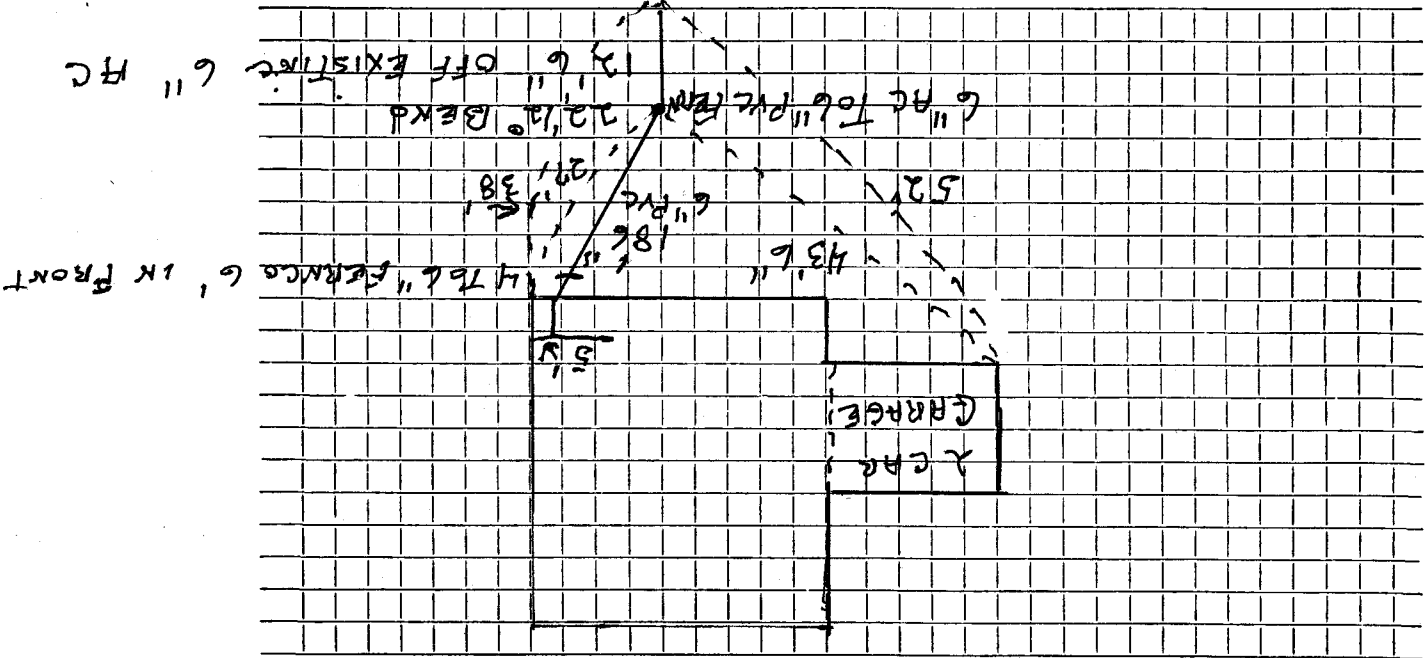 2 CAR
GARAGE
5'
4 TO 6" FERNCO 6' IN FRONT
43'6"
18'6"
6" PVC
52
38'
27'
6" AC TO 6" PVC FERN
22 1/2° BEND
12'6" OFF EXISTING 6" AC